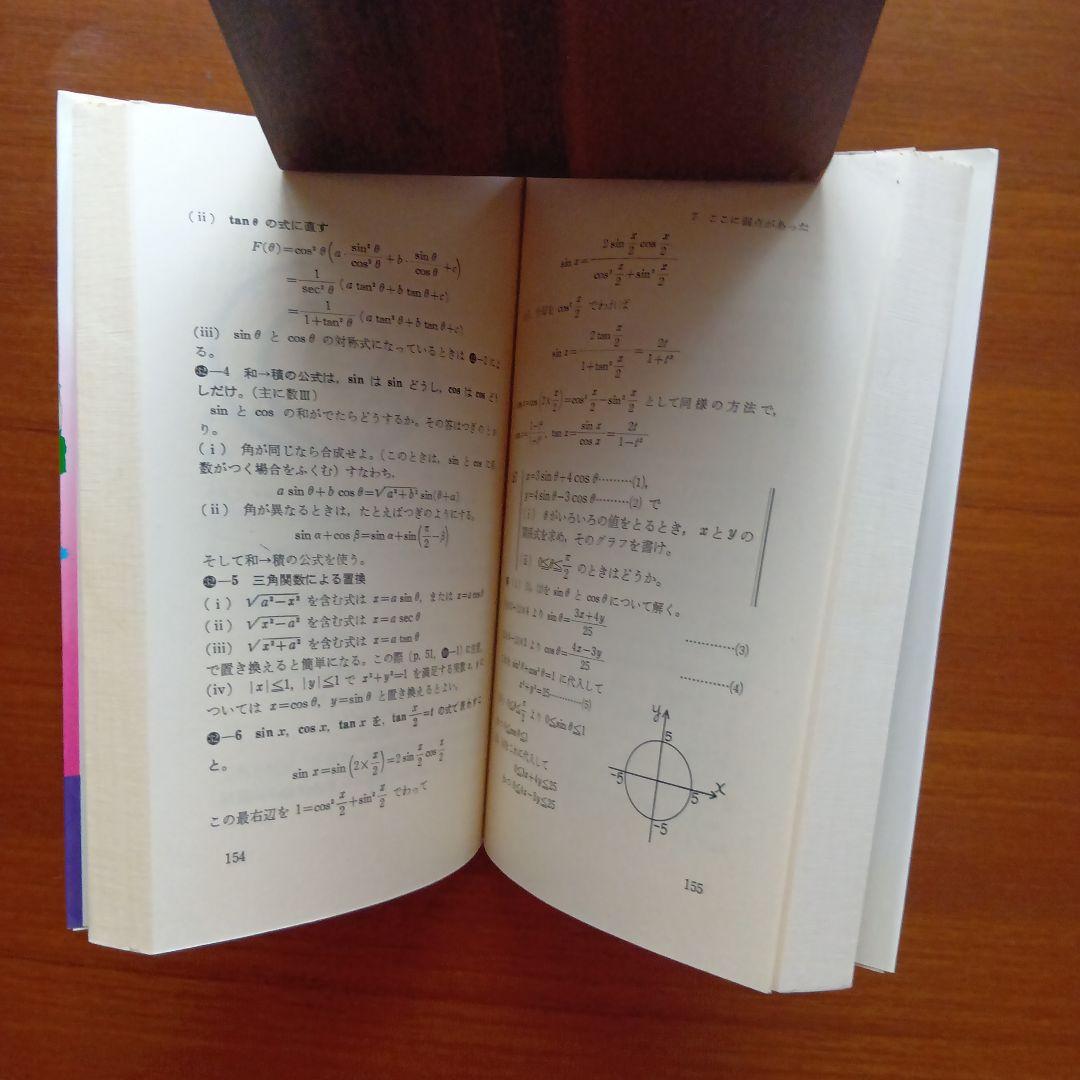 (ii) tanθ の式に直す
F(θ)=cos²θ(a·sin²θ/cos²θ+b·sinθ/cosθ+c)
=1/sec²θ (a tan²θ+b tanθ+c)
=1/1+tan²θ (a tan²θ+b tanθ+c)
(iii) sinθ と cosθ の対称式になっているときは ㉜—2 によ
る。
㉜—4 和→積の公式は，sin は sin どうし，cos は cos どう
しだけ。（主に数Ⅲ）
sin と cos の和がでたらどうするか。その答はつぎのとお
り。
(i) 角が同じなら合成せよ。（このときは，sin と cos に係
数がつく場合をふくむ）すなわち，
a sinθ+b cosθ=√a²+b² sin(θ+α)
(ii) 角が異なるときは，たとえばつぎのようにする。
sinα+cosβ=sinα+sin(π/2−β)
そして和→積の公式を使う。
㉜—5 三角関数による置換
(i) √a²−x² を含む式は x=a sinθ，または x=a cosθ
(ii) √x²−a² を含む式は x=a secθ
(iii) √x²+a² を含む式は x=a tanθ
で置き換えると簡単になる。この際 (p. 51, —1) に注意。
(iv) |x|≦1, |y|≦1 で x²+y²=1 を満足する実数 x, y に
ついては x=cosθ, y=sinθ と置き換えるとよい。
㉜—6 sin x, cos x, tan x を，tan x/2=t の式で表わすこ
と。
sin x=sin(2×x/2)=2sin x/2 cos x/2
この最右辺を 1=cos² x/2+sin² x/2 でわって
154
7 ここに弱点があった
sin x=2sin x/2 cos x/2 / cos² x/2+sin² x/2
cos² x/2 でわれば
sin x=2tan x/2 / 1+tan² x/2=2t/1+t²
cos x=cos(2×x/2)=cos² x/2−sin² x/2 として同様の方法で，
1−t²/1+t², tan x=sin x/cos x=2t/1−t²
x=3sinθ+4cosθ………(1),
y=4sinθ−3cosθ………(2) で
(i) θがいろいろの値をとるとき，xとyの
関係式を求め，そのグラフを書け。
(ii) 0≦θ≦π/2 のときはどうか。
を sinθ と cosθ について解く。
より sinθ=3x+4y/25 …………(3)
より cosθ=4x−3y/25 …………(4)
sin²θ+cos²θ=1 に代入して
x²+y²=25…………(5)
より 0≦sinθ≦1
0≦cosθ≦1
に代入して
0≦3x+4y≦25
0≦4x−3y≦25
y
5
−5
5
x
−5
155